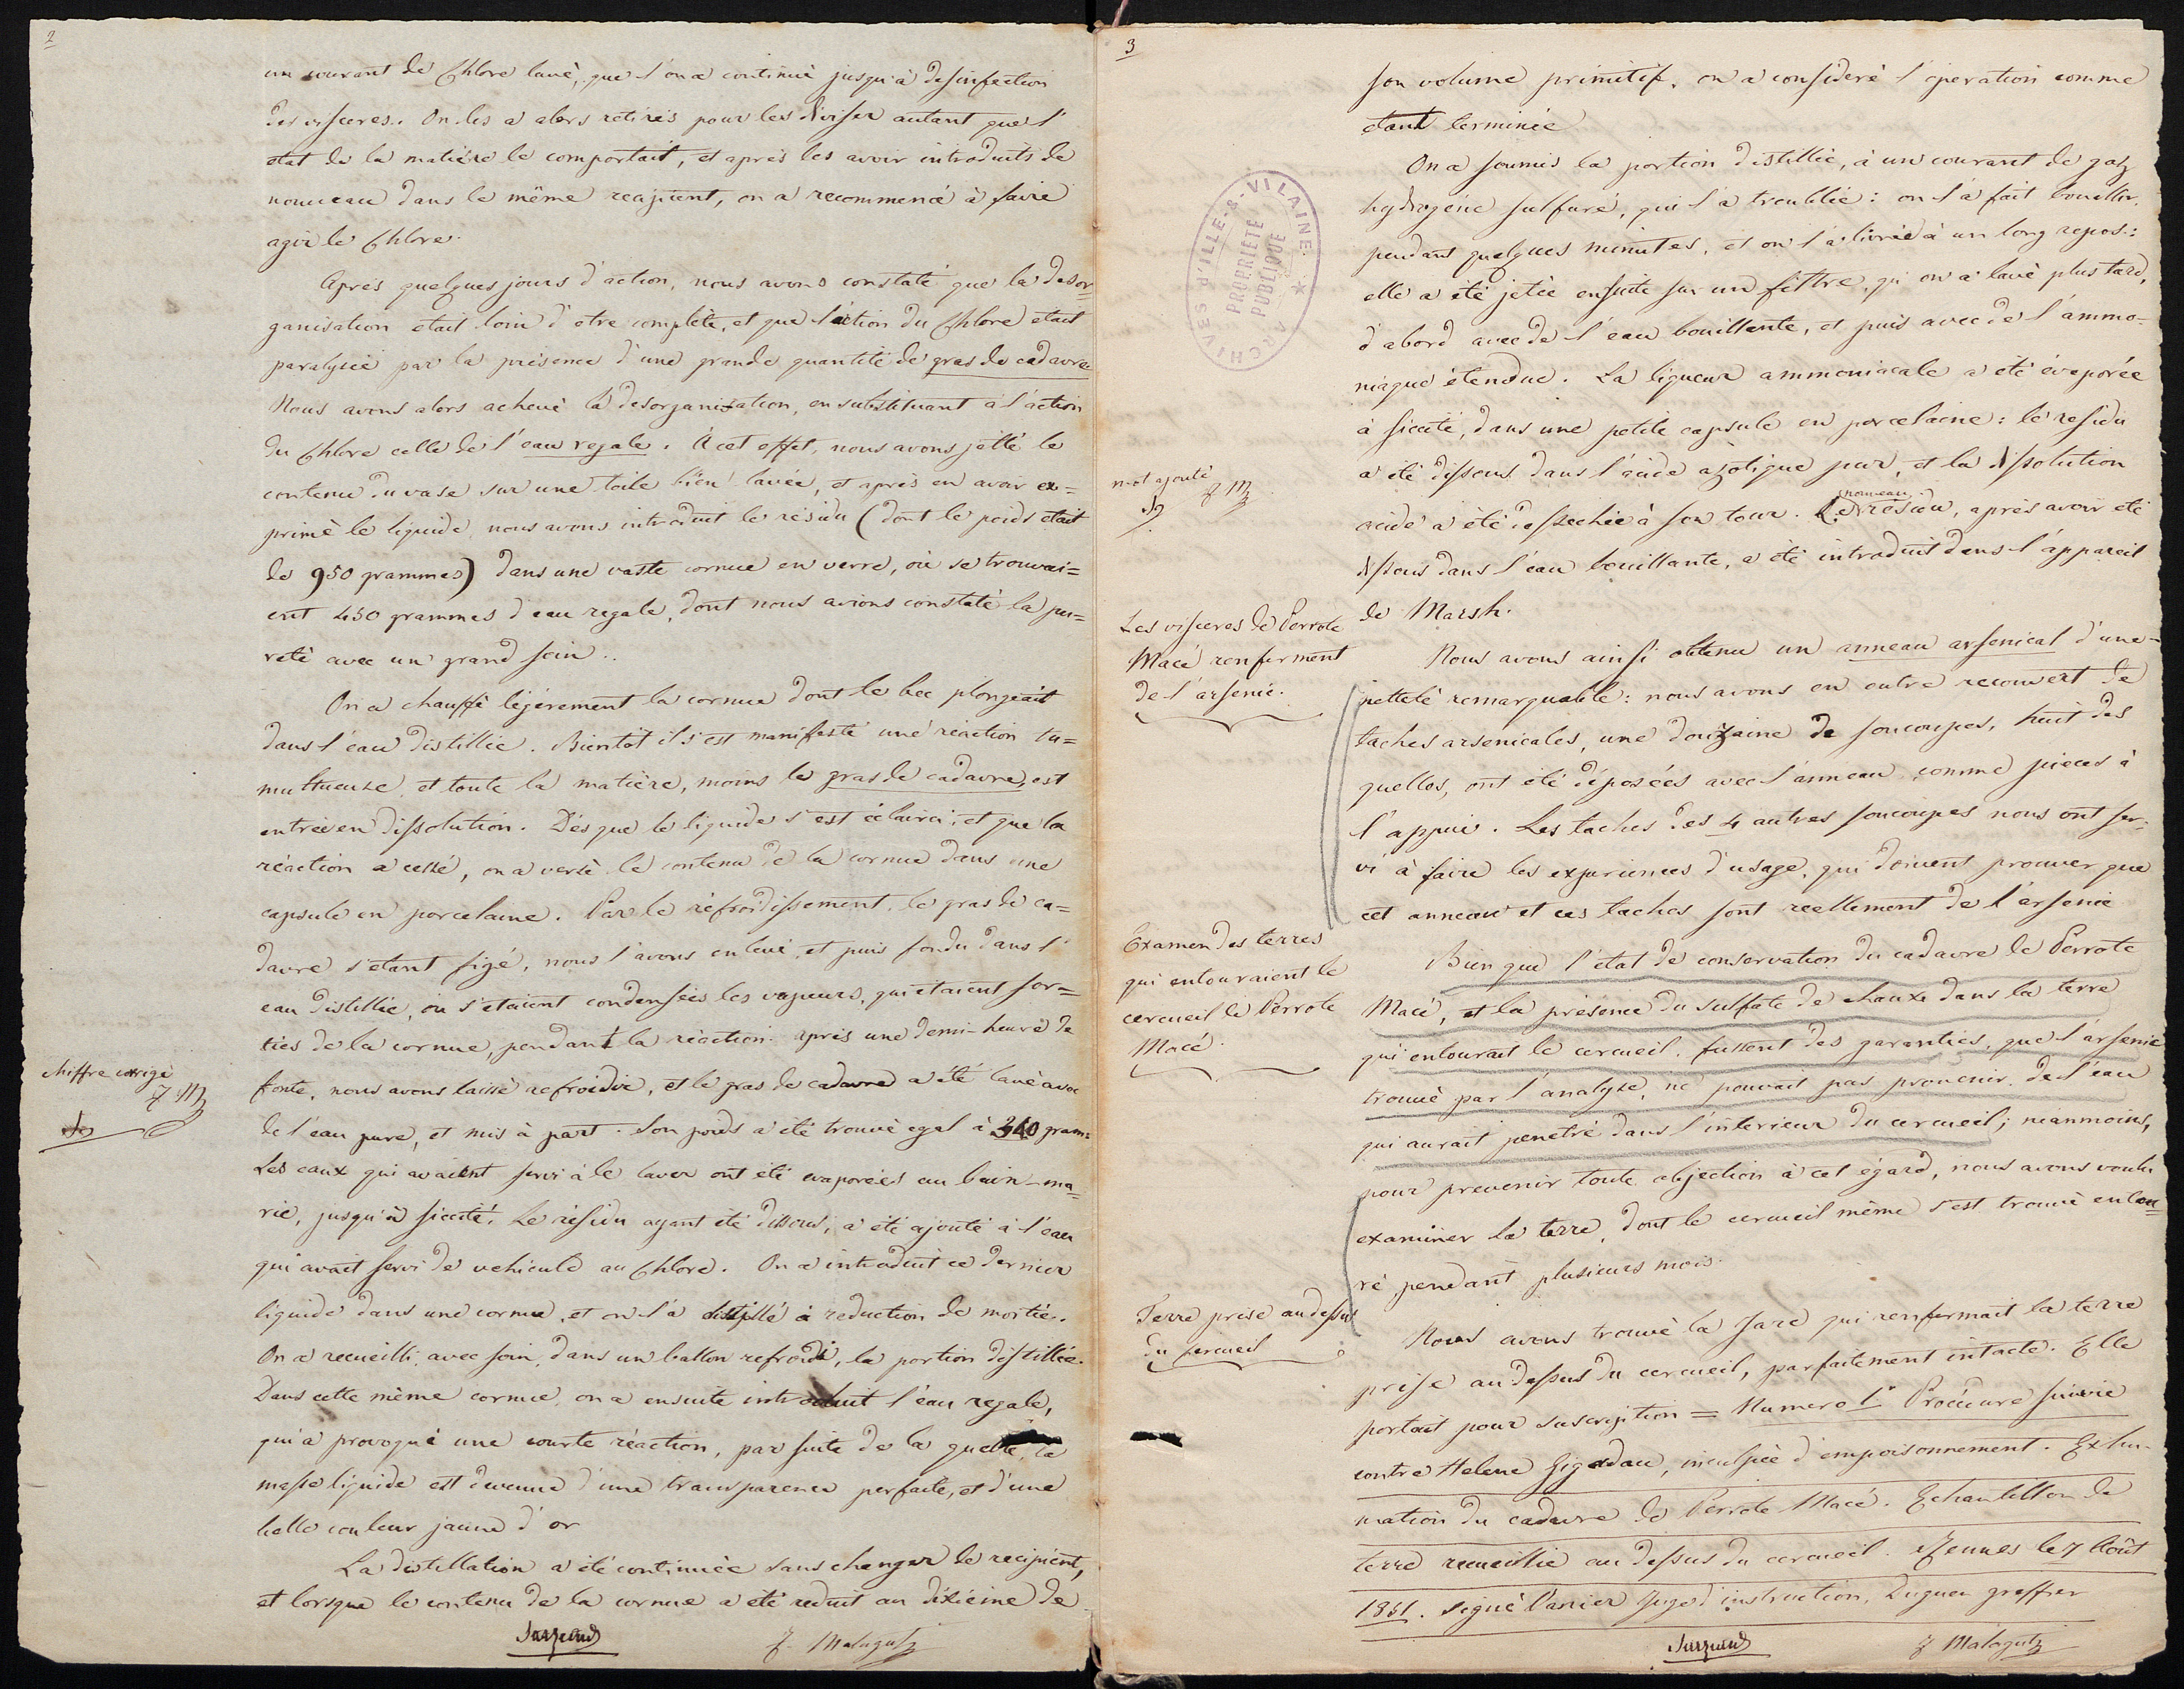 2
un courant de Chlore lavé, que l'on a continué jusqu'à desinfection
des visceres. On les a alors retirés pour les diviser autant que l'
etat de la matière le comportait, et après les avoir introduits de
nouveau dans le même recipient, on a recommencé à faire
agir le Chlore.
Après quelques jours d'action, nous avons constaté que la desor-
ganisation etait loin d'etre complète, et que l'action du Chlore etait
paralysée par la présence d'une grande quantité de gras de cadavre
Nous avons alors achevé la desorganisation, en substituant à l'action
du Chlore celle de l'eau regale. À cet effet, nous avons jetté le
contenu du vase sur une toile bien lavée, et après en avoir ex=
primé le liquide, nous avons introduit le résidu (dont le poids etait
de 950 grammes) dans une vaste cornue en verre, où se trouvai=
ent 450 grammes d'eau regale, dont nous avions constaté la pu=
reté avec un grand soin..
On a chauffé légèrement la cornue dont le bec plongeait
dans l'eau distillée. Bientot il s'est manifesté une réaction tu=
multueuse, et toute la matière, moins le gras de cadavre, est
entrée en dissolution. Dès que le liquide s'est éclairci, et que la
réaction a cessé, on a versé le contenu de la cornue dans une
capsule en porcelaine. Par le refroidissement, le gras de ca=
davre s'etant figé, nous l'avons enlevé, et puis fondu dans l'
eau distillée, où s'etaient condensées les vapeurs, qui etaient sor=
ties de la cornue, pendant la réaction. après une demi-heure de
chiffre corrigé
F M
fonte, nous avons laissé refroidir, et le gras de cadavre a été lavé avec
de l'eau pure, et mis à part. Son poids a été trouvé egal à 340 gram=
Les eaux qui avaient servi à le laver ont été evaporées au bain-ma=
rie, jusqu'à siccité. Le résidu ayant été dissous, a été ajouté à l'eau
qui avait servi de vehicule au Chlore. On a introduit ce dernier
liquide dans une cornue, et on l'a distillé à reduction de moitié.
On a recueilli, avec soin, dans un ballon refroidi, la portion distillée.
Dans cette même cornue, on a ensuite introduit l'eau regale,
qui a provoqué une courte réaction, par suite de la quelle, la
masse liquide est devenue d'une transparence parfaite, et d'une
belle couleur jaune d'or
La distillation a été continuée sans changer de recipient,
et lorsque le contenu de la cornue a été reduit au dixième de
F. Malaguti
3
son volume primitif, on a consideré l'operation comme
etant terminée
On a soumis la portion distillée, à un courant de gaz
hydrogène sulfuré, qui l'a troublée: on l'a fait bouillir
pendant quelques minutes, et on l'a livrée à un long repos:
elle a été jetée ensuite sur un filtre, qu'on a lavé plus tard,
d'abord avec de l'eau bouillante, et puis avec de l'ammo-
niaque étendue. La liqueur ammoniacale a été évaporée
à siccité, dans une petite capsule en porcelaine: le residu
a été dissous dans l'acide azotique pur, et la dissolution
mot ajouté
F M
acide a été dessechée à son tour. Le nouveau résidu, après avoir eté
dissous dans l'eau bouillante, a été introduit dans l'appareil
de Marsh.
Les visceres de Perrote
Macé renferment
de l'arsenic.
Nous avons ainsi obtenu un anneau arsenical d'une
netteté remarquable: nous avons en outre recouvert de
taches arsenicales, une douzaine de soucoupes, huit des
quelles, ont été déposées avec l'anneau comme pieces à
l'appui. Les taches des 4 autres soucoupes nous ont ser-
vi à faire les experiences d'usage, qui doivent prouver que
cet anneau et ces taches sont reellement de l'arsenic
Examen des terres
qui entouraient le
cercueil de Perrote
Macé.
Bien que l'état de conservation du cadavre de Perrote
Macé, et la présence du sulfate de chaux dans la terre
qui entourait le cercueil, fussent des garanties, que l'arsenic
trouvé par l'analyse, ne pouvait pas provenir de l'eau
qui aurait penetré dans l'interieur du cercueil; néanmoins,
pour prevenir toute objection à cet égard, nous avons voulu
examiner la terre, dont le cercueil même s'est trouvé entou=
ré pendant plusieurs mois.
Terre prise au dessus
du cercueil
Nous avons trouvé la jare qui renfermait la terre
prise au dessus du cercueil, parfaitement intacte. Elle
portait pour suscription = Numero 1er Procédure suivie
contre Helene Jegadau, inculpée d'empoisonnement. Exhu-
mation du cadavre de Perrote Macé. Echantillon de
terre recueillie au dessus du cercueil. Rennes le 7 Août
1851. signé Vanier Juge d'instruction, Duguen greffier
F Malaguti
ARCHIVES d'ILLE-&-VILAINE
PROPRIÉTÉ
PUBLIQUE